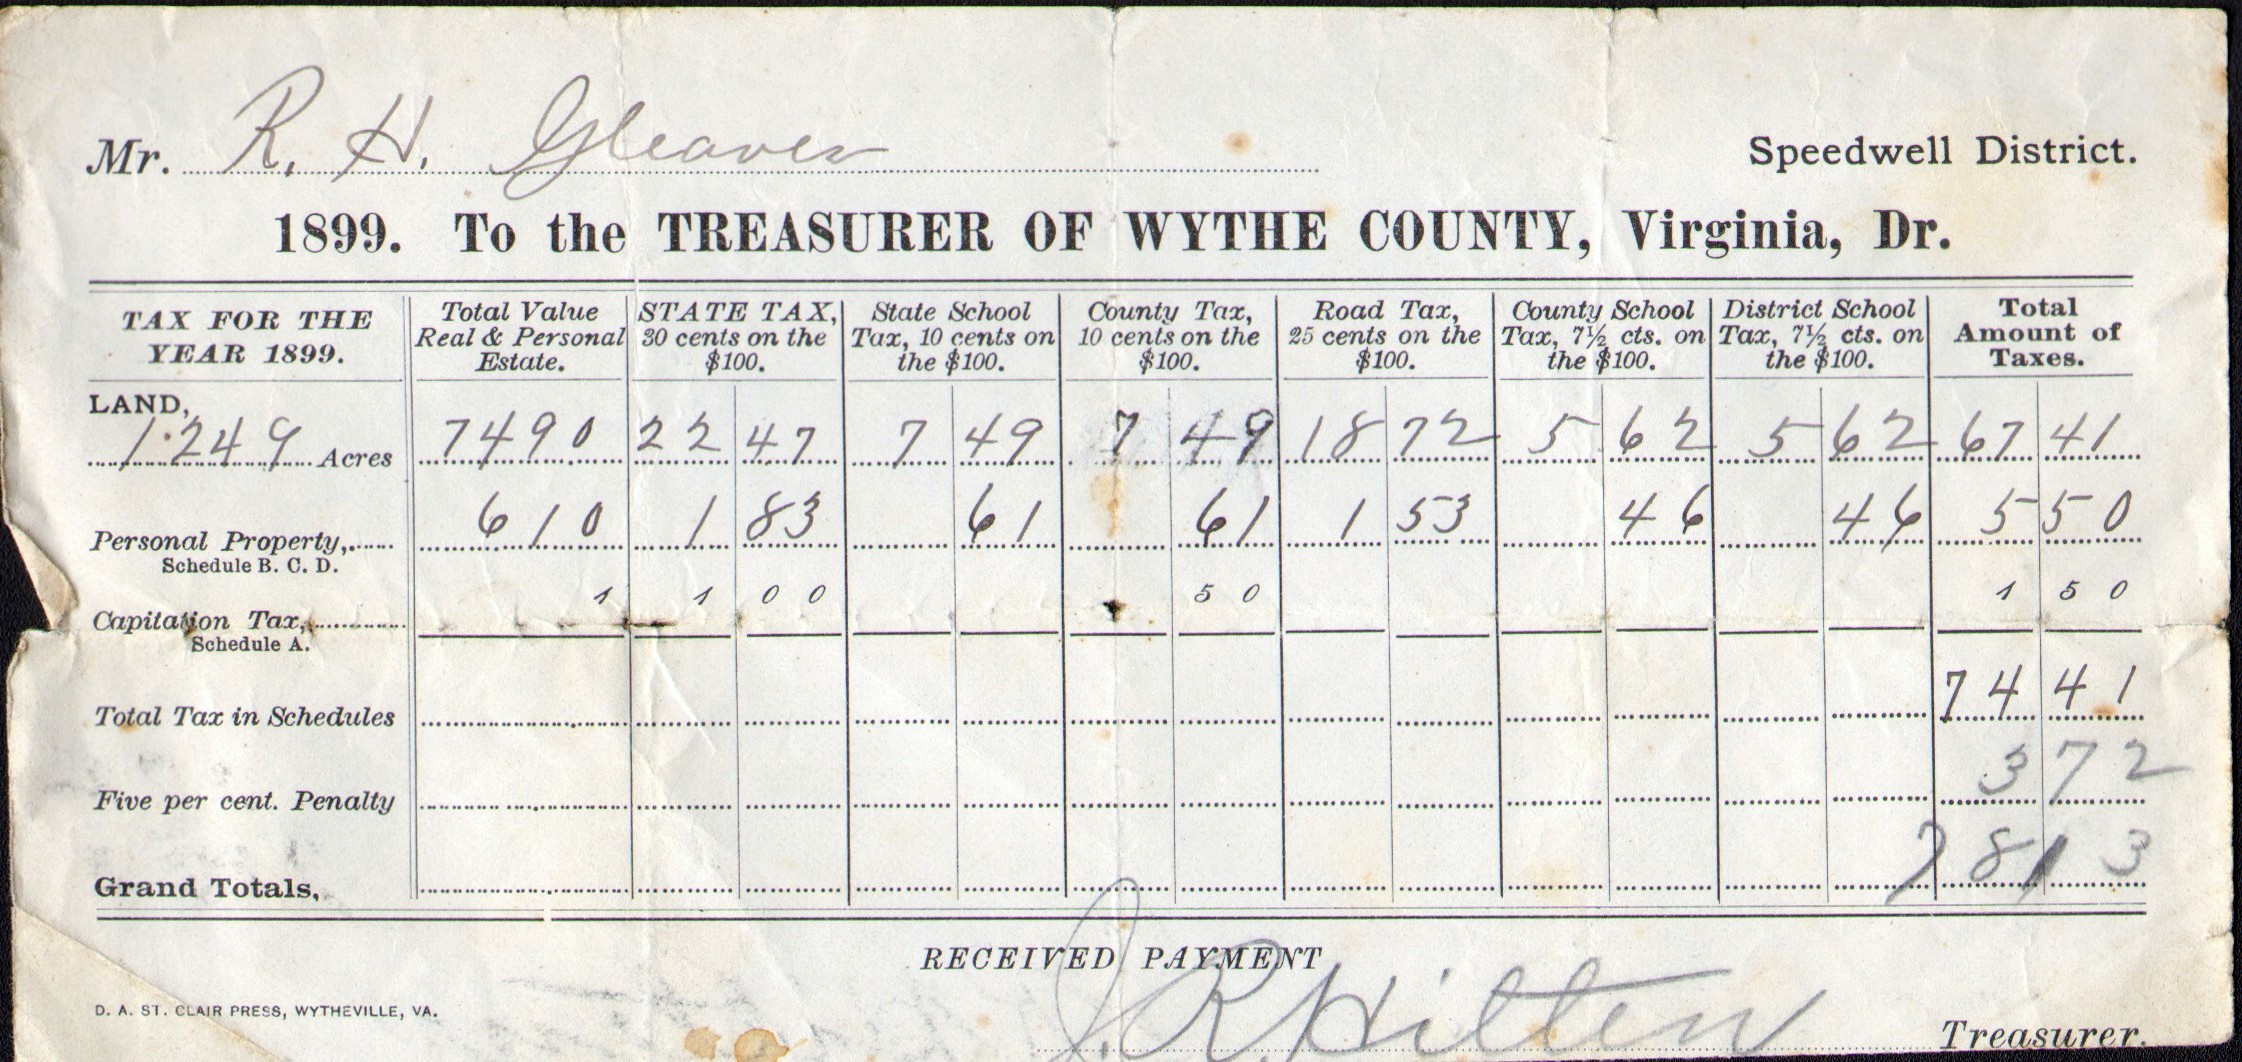 Mr. R. H. Gleaver
Speedwell District.
1899. To the TREASURER OF WYTHE COUNTY, Virginia, Dr.
TAX FOR THE YEAR 1899. Total Value Real & Personal Estate. STATE TAX, 30 cents on the $100. State School Tax, 10 cents on the $100. County Tax, 10 cents on the $100. Road Tax, 25 cents on the $100. County School Tax, 7½ cts. on the $100. District School Tax, 7½ cts. on the $100. Total Amount of Taxes.
LAND,
1249 Acres 7490 22 47 7 49 7 49 18 72 5 62 5 62 67 41
Personal Property, 610 1 83 61 61 1 53 46 46 5 50
Schedule B. C. D.
Capitation Tax, 1 1 00 50 1 50
Schedule A.
Total Tax in Schedules 74 41
Five per cent. Penalty 3 72
Grand Totals, 78 13
RECEIVED PAYMENT
D. A. ST. CLAIR PRESS, WYTHEVILLE, VA.
J. R. Hilten Treasurer.